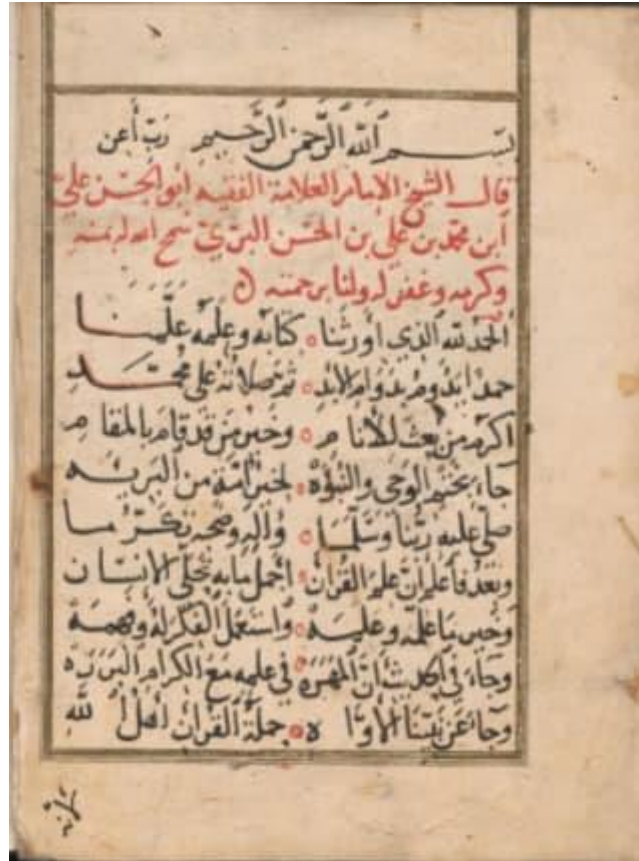 بسم الله الرحمن الرحيم رب أعن
قال الشيخ الامام العلامة الفقيه ابو الحسن علي
ابن محمد بن علي بن الحسن البري سمح الله له بمنه
وكرمه وغفر له ولنا برحمته
الحمد لله الذي أورثنا كتابه وعلمه علمنا
حمدا يدوم بدوام الأبد ثم صلاته على محمد
اكرم من بعث للأنام وخير من قد قام بالمقام
جاء بختم الوحي والنبوه لخير امة من البريه
صلى عليه ربنا وسلما واله وصحبه تكرما
وبعد فاعلم ان علم القران اجمل ما به تحلى الانسان
وخير ما علمه وعليمه واستعمل الفكر له وفهمه
وجاء في الحديث ان المهره في علمه مع الكرام البرره
وجاء عن نبينا الأواه حملة القران أهل الله